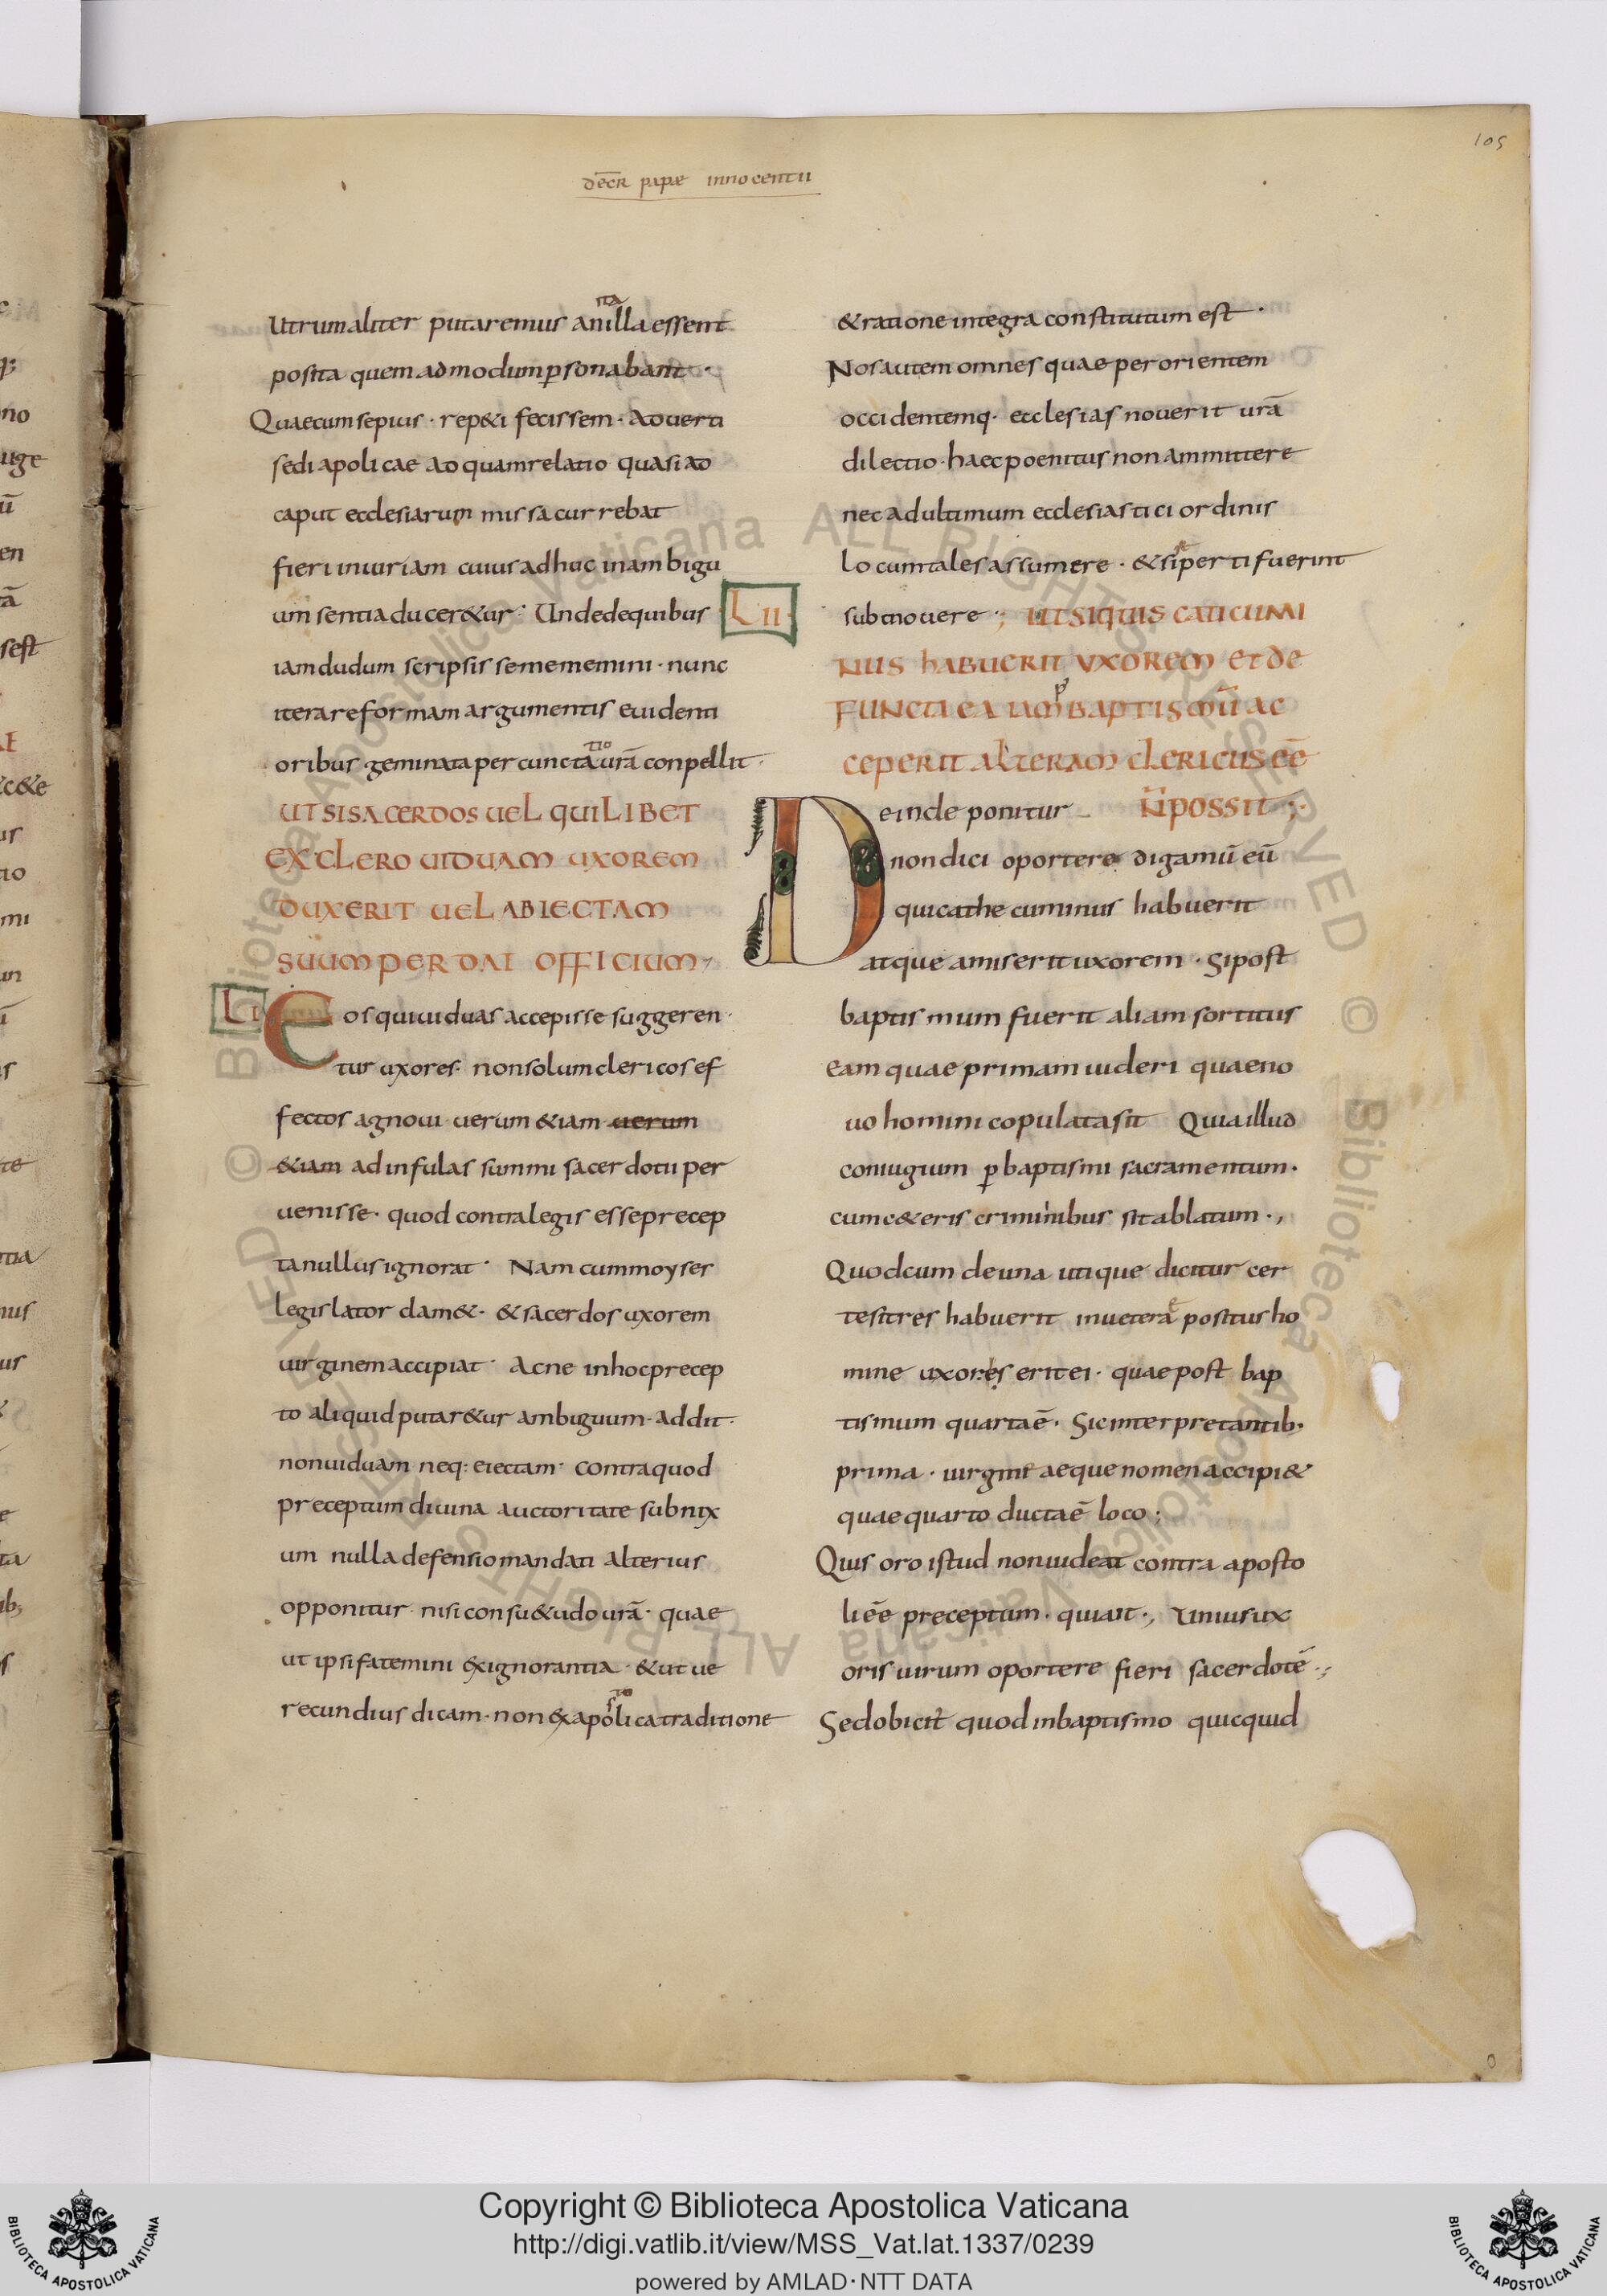 105
decr̄ papae innocentii
Utrum aliter putaremus an illa ita essent
posita quem ad modum ꝑsonabant ·
Quae cum sepius · rep&i fecissem · Aduerti
sedi apolicae ad quam relatio quasi ad
caput ecclesiarum missa currebat
fieri iniuriam cuius adhuc in ambigu
um sentia ducer&ur · Unde de quibus
iamdudum scripsisse me memini · nunc
iterare formam argumentis euidenti
oribus geminata percunctatio urā conpellit ·
UT SI SACERDOS UEL QUILIBET
EX CLERO UIDUAM UXOREM
DUXERIT UEL ABIECTAM
SUUM PERDAT OFFICIUM
LI Eos qui uiduas accepisse suggeren
tur uxores · non solum clericos ef
fectos agnoui uerum &iam uerum
&iam ad infulas summi sacerdotii per
uenisse · quod contra legis esse precep
ta nullus ignorat · Nam cum moyses
legislator dam& · & sacerdos uxorem
uirginem accipiat · Ac ne in hoc precep
to aliquid putar&ur ambiguum · addit ·
non uiduam neq: eiectam · Contra quod
preceptum diuina auctoritate subnix
um nulla defensio mandati alterius
opponitur nisi consu&udo urā · quae
ut ipsi fatemini ex ignorantia · & ut ue
recundius dicam · non ex apolica traditione
& ratione integra constitutum est ·
Nos autem omnes quae per orientem
occidentemq· ecclesias nouerit urā
dilectio · haec poenitus non ammittere
nec ad ultimum ecclesiastici ordinis
locum tales assumere · & si perti fuerint
submouere ; LII UT SI QUIS CATICUMI
NUS HABUERIT UXOREM ET DE
FUNCTA EA IAM BAPTISMŪ AC
CEPERIT ALTERAM CLERICUS EĒ
Deinde ponitur N̄ POSSIT ;
non dici oportere digamū eū
qui cathecuminus habuerit
atque amiserit uxorem · Si post
baptismum fuerit aliam sortitus
eam quae primam uideri quae no
uo homini copulata sit Quia illud
coniugium ꝑ baptismi sacramentum ·
cum c&eris criminibus sit ablatum ·,
Quod cum de una utique dicitur cer
te si tres habuerit in uetera positus ho
mine uxores erit ei · quae post bap
tismum quarta ē · Sic interpretantib·
prima · uirgine aeque nomen accipi&
quae quarto ducta ē loco ;
Quis oro istud non uideat contra aposto
li eē preceptum · qui ait ·, Unius ux
oris uirum oportere fieri sacerdotē ·,
Sed obicit quod in baptismo quicquid
Copyright © Biblioteca Apostolica Vaticana
http://digi.vatlib.it/view/MSS_Vat.lat.1337/0239
powered by AMLAD·NTT DATA
BIBLIOTECA APOSTOLICA VATICANA
BIBLIOTECA APOSTOLICA VATICANA